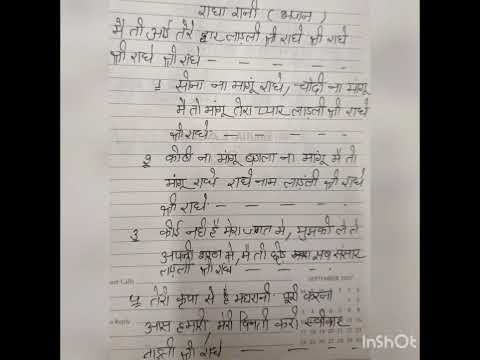 राधा रानी (भजन)
मैं तो आई तेरे द्वार लाडली श्री राधे श्री राधे
श्री राधे श्री राधे - - - - - -
1 सोना ना मांगू राधे, चांदी ना मांगू
मैं तो मांगू तेरा प्यार लाडली श्री राधे
श्री राधे - - - - -
2 कोठी ना मांगू बंगला ना मांगू मैं तो
मांगू राधे राधे नाम लाडली श्री राधे
श्री राधे - - - - -
3 कोई नही है मेरा जगत मे, मुझको ले ले
अपनी शरण मे, मै तो छोड़ सब संसार
लाडली श्री राधे - - - - -
SEPTEMBER
4 तेरी कृपा से है महारानी पूरी करना
आस हमारी, मेरी विनती करो स्वीकार
लाडली श्री राधे - - - -
InShOt